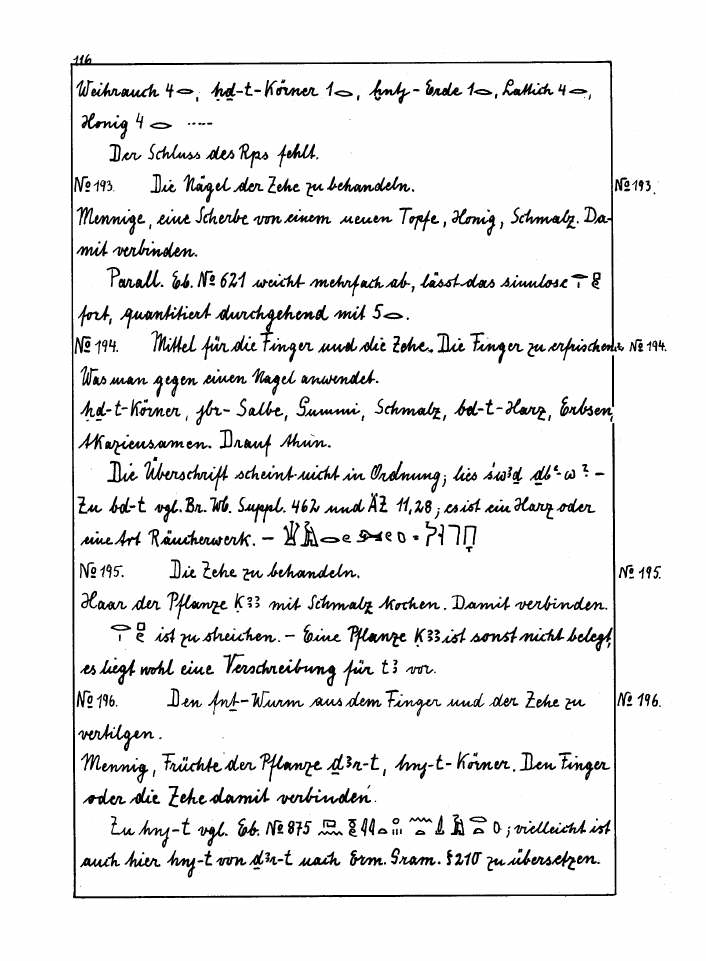 116
Weihrauch 4 𓂋, ḥḏ-t-Körner 1 𓂋, ḫntj-Erde 1 𓂋, Lattich 4 𓂋,
Honig 4 𓂋 ----
Der Schluss des Rps fehlt.
№ 193. Die Nägel der Zehe zu behandeln. № 193.
Mennige, eine Scherbe von einem neuen Topfe, Honig, Schmalz. Da-
mit verbinden.
Parall. Eb. № 621 weicht mehrfach ab, lässt das sinnlose
fort, quantitiert durchgehend mit 5 𓂋.
№ 194. Mittel für die Finger und die Zehe. Die Finger zu erfrischen. № 194.
Was man gegen einen Nagel anwendet.
ḥḏ-t-Körner, jbr-Salbe, Gummi, Schmalz, bd-t-Harz, Erbsen,
Akaziensamen. Drauf thun.
Die Überschrift scheint nicht in Ordnung; lies św3d ḏbʿ-w ? –
Zu bd-t vgl. Br. Wb. Suppl. 462 und ÄZ 11,28; es ist ein Harz oder
eine Art Räucherwerk. –
№ 195. Die Zehe zu behandeln. № 195.
Haar der Pflanze Ḳ33 mit Schmalz kochen. Damit verbinden.
ist zu streichen. – Eine Pflanze Ḳ33 ist sonst nicht belegt,
es liegt wohl eine Verschreibung für t3 vor.
№ 196. Den fnṯ-Wurm aus dem Finger und der Zehe zu № 196.
vertilgen.
Mennig, Früchte der Pflanze ḏ3r-t, hnj-t-Körner. Den Finger
oder die Zehe damit verbinden.
Zu hnj-t vgl. Eb. № 875 ; vielleicht ist
auch hier hnj-t von ḏ3r-t nach Erm. Gram. § 210 zu übersetzen.